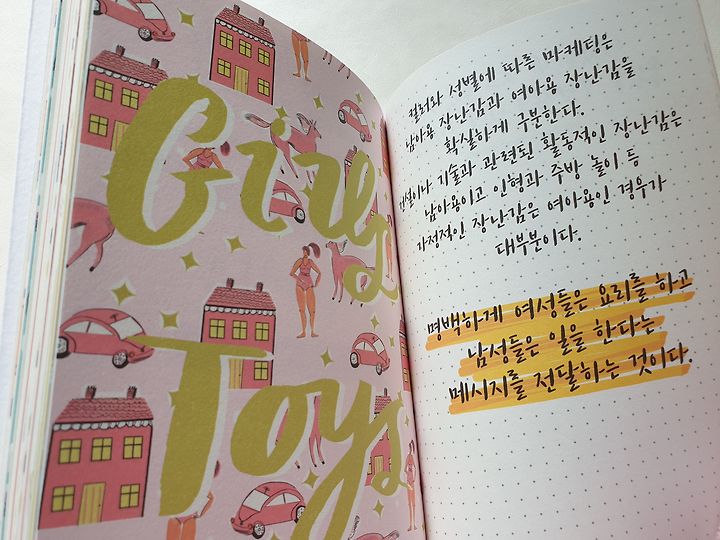 Girls
Toys
컬러와 성별에 따른 마케팅은
남아용 장난감과 여아용 장난감을
확실하게 구분한다.
건설이나 기술과 관련된 활동적인 장난감은
남아용이고 인형과 주방 놀이 등
가정적인 장난감은 여아용인 경우가
대부분이다.
명백하게 여성들은 요리를 하고
남성들은 일을 한다는
메시지를 전달하는 것이다.